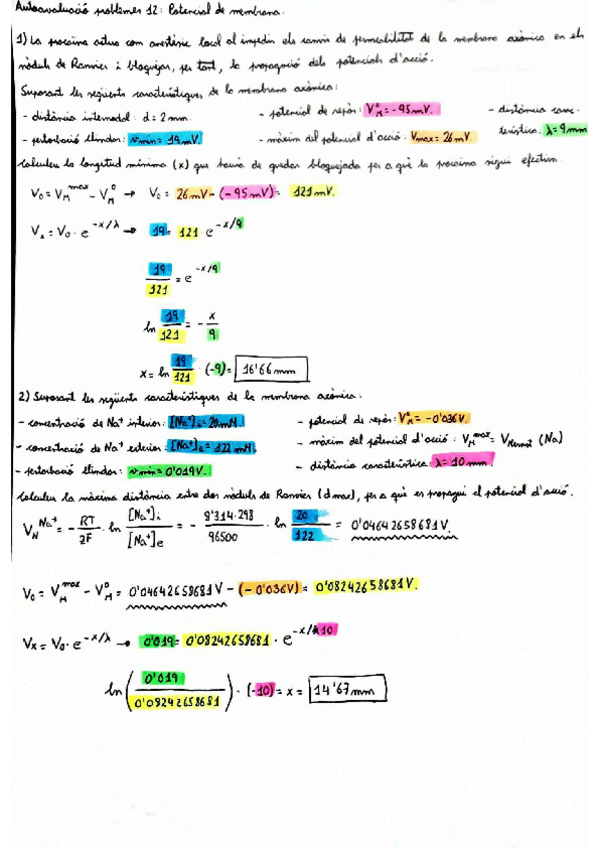 Autoavaluació problemes 12: Potencial de membrana.
1) La procaïna actua com anestèsic local al impedir els canvis de permeabilitat de la membrana axònica en els
nòduls de Ranvier i bloquejar, per tant, la propagació dels potencials d'acció.
Suposant les següents característiques de la membrana axònica:
- distància internodal: d = 2 mm. - potencial de repòs: V°M = -95 mV. - distància carac-
- pertorbació llindar: vmin = 19 mV. - màxim del potencial d'acció: Vmax = 26 mV terística: λ = 9 mm
Calculeu la longitud mínima (x) que hauria de quedar bloquejada per a què la procaïna sigui efectiva.
V0 = VM^max - VM^0 → V0 = 26 mV - (-95 mV) = 121 mV.
Vx = V0 · e^-x/λ → 19 = 121 · e^-x/9
19/121 = e^-x/9
ln 19/121 = - x/9
x = ln 19/121 · (-9) = 16'66 mm
2) Suposant les següents característiques de la membrana axònica:
- concentració de Na+ interior: [Na+]i = 20 mM. - potencial de repòs: V°M = -0'036 V.
- concentració de Na+ exterior: [Na+]e = 122 mM. - màxim del potencial d'acció: VM^max = VNernst (Na)
- pertorbació llindar: vmin = 0'019 V. - distància característica: λ = 10 mm.
Calculeu la màxima distància entre dos nòduls de Ranvier (d max), per a què es propagui el potencial d'acció.
VN^Na+ = - RT/zF · ln [Na+]i/[Na+]e = - 8'314·298/96500 · ln 20/122 = 0'04642658681 V.
V0 = VM^max - VM^0 = 0'04642658681 V - (-0'036 V) = 0'08242658681 V.
Vx = V0 · e^-x/λ → 0'019 = 0'08242658681 · e^-x/10
ln (0'019/0'08242658681) · (-10) = x = 14'67 mm